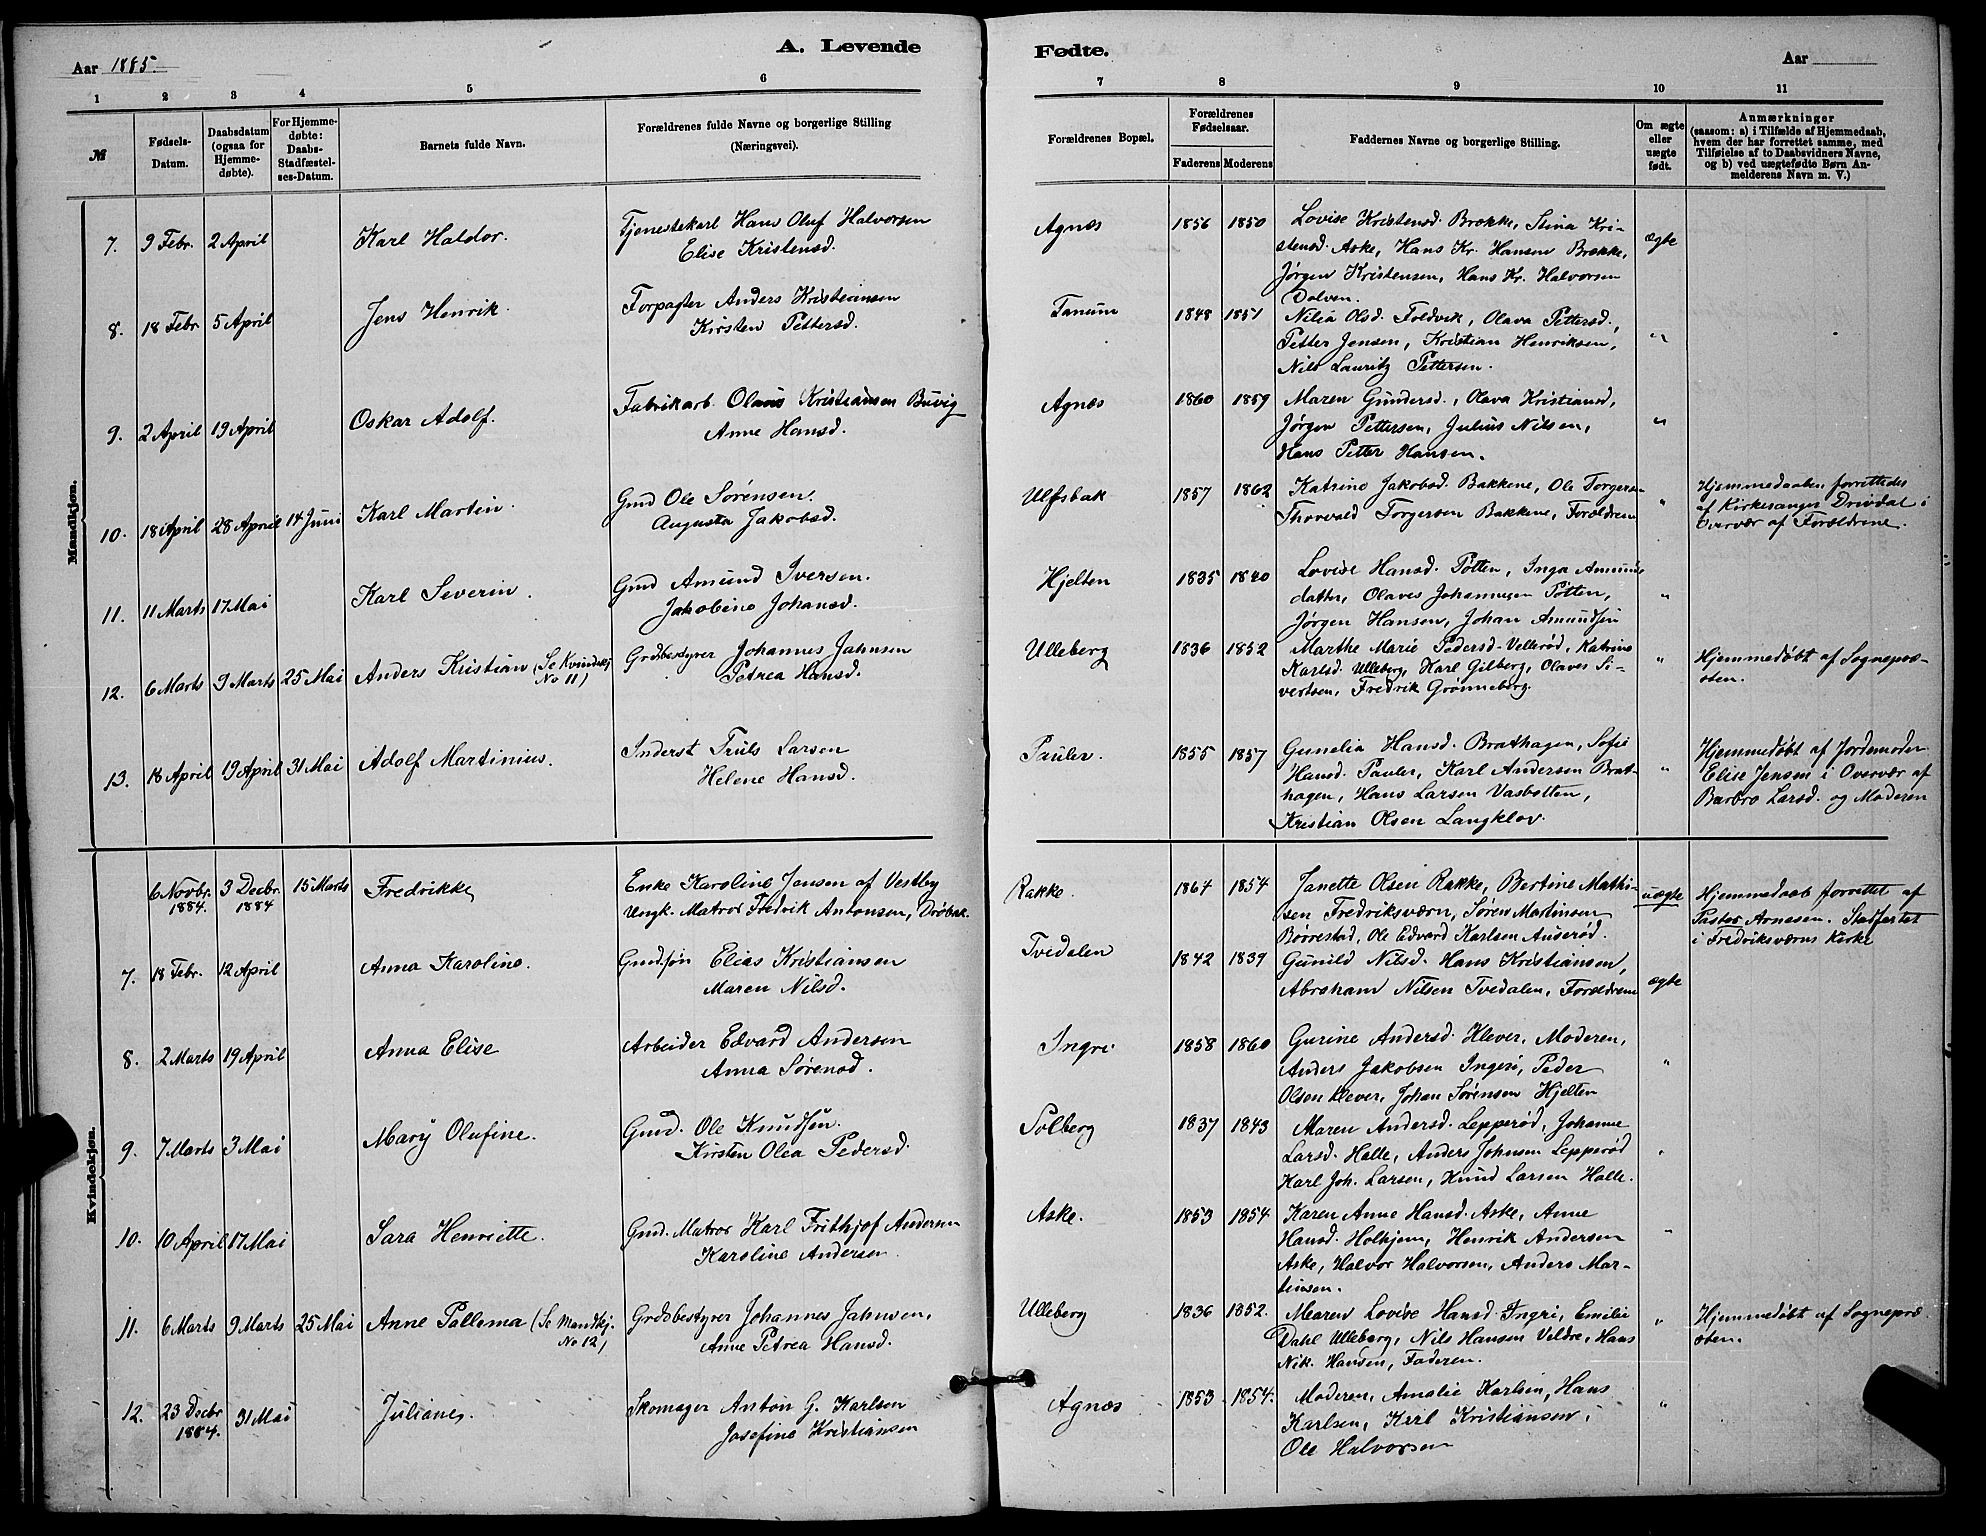 A. Levende Fødte.
Aar 1885.
Aar
1 2 3 4 5 6 7 8 9 10 11
№
Fødsels-
Datum.
Daabsdatum
(ogsaa for
Hjemme-
døbte).
For Hjemme-
døbte:
Daabs-
Stadfæstel-
ses-Datum.
Barnets fulde Navn.
Forældrenes fulde Navne og borgerlige Stilling
(Næringsvei).
Forældrenes Bopæl.
Forældrenes
Fødselsaar.
Faderens Moderens
Faddernes Navne og borgerlige Stilling.
Om ægte
eller
uægte
født.
Anmærkninger
(saasom: a) i Tilfælde af Hjemmedaab,
hvem der har forrettet samme, med
Tilføielse af to Daabsvidners Navne,
og b) ved uægtefødte Børn An-
melderens Navn m. V.)
Mandkjøn.
7. 9 Febr. 2 April Karl Haldor.
Tjenestekarl Hans Oluf Halvorsen
Elise Kristensd.
Agnæs 1856 1850
Lovise Kristensd. Brække, Stina Kri-
stensd. Aske, Hans Kr. Hansen Brække,
Jørgen Kristensen, Hans Kr. Halvorsen
Dolven.
ægte
8. 18 Febr 5 April Jens Henrik.
Forpagter Anders Kristiansen
Kirsten Pettersd.
Tanum 1848 1851
Nilia Olsd. Foldvik, Olava Pettersd.,
Petter Jensen, Kristian Henriksen,
Nils Lauritz Pettersen.
"
9. 2 April 19 April Oskar Adolf.
Fabrikarb. Olaus Kristiansen Buvig
Anne Hansd.
Agnæs 1860 1859
Maren Gundersd., Olava Kristiansd,
Jørgen Pettersen, Julius Nilsen,
Hans Petter Hansen.
"
10. 18 April 28 April 14 Juni Karl Martin.
Gmd Ole Sørensen.
Augusta Jakobsd.
Ulfsbak 1857 1862
Katrine Jakobsd Bakkene, Ole Torgersen
Thorvald Torgersen Bakkene, Forældrene
"
Hjemmedaaben forrettedes
af Kirkesanger Drivdal i
Overvær af Forældrene.
11. 11 Marts 17 Mai Karl Severin.
Gmd Amund Iversen.
Jakobine Johansd.
Hjelten 1835 1840
Lovise Hansd. Potten, Inga Amunds
datter, Olaves Johannesen Potten,
Jørgen Hansen, Johan Amundsen
"
12. 6 Marts 9 Marts 25 Mai Anders Kristian (Se Kvindekj
No 11)
Grdsbestyrer Johannes Jahnsen
Petrea Hansd.
Ulleberg 1836 1852
Marthe Marie Pedersd. Vellerød, Katrine
Karlsd. Ulleberg, Karl Gilberg, Olaves Si-
vertsen, Fredrik Grønneberg.
"
Hjemmedøbt af Sognepræ-
sten.
13. 18 April 19 April 31 Mai Adolf Martinius.
Inderst Truls Larsen
Helene Hansd.
Pauler. 1855 1857
Gunelia Hansd. Brathagen, Sofie
Hansd. Pauler, Karl Andersen Brat-
hagen, Hans Larsen Vasbotten,
Kristian Olsen Langklov.
"
Hjemmedøbt af Jordemoder
Elise Jensen i Overvær af
Barbro Larsd. og Moderen
Kvindekjøn.
6 Novbr. 3 Decbr 15 Marts Fredrikke
1884. 1884
Enke Karoline Jensen af Vestby
Ungk. Matros Fredrik Antonsen, Drøbak.
Rakke. 1864 1854
Janette Olsen Rakke, Bertine Mathi-
sen Fredriksværn, Søren Martinsen
Børrestad, Ole Edvard Karlsen Auserød.
uægte
Hjemmedaab forrettet af
Pastor Arnesen. Stadfæstet
i Fredriksværns Kirke
7. 18 Febr. 12 April Anna Karoline.
Gmdsøn Elias Kristiansen
Maren Nilsd.
Tvedalen 1842 1839
Gunild Nilsd. Hans Kristiansen,
Abraham Nilsen Tvedalen, Forældrene
ægte
8. 2 Marts 19 April Anna Elise
Arbeider Edvard Andersen
Anna Sørensd.
Ingri 1858 1860
Gurine Andersd. Klever, Moderen,
Anders Jakobsen Ingeri, Peder
Olsen Klever, Johan Sørensen Hjelten
"
9. 7 Marts 3 Mai Mary Olufine.
Gmd. Ole Knudsen.
Kirsten Olea Pedersd.
Solberg 1837 1843
Maren Andersd. Lepperød, Johanne
Larsd. Halle, Anders Johnsen Lepperød
Karl Joh. Larsen, Knud Larsen Halle.
"
10. 10 April 17 Mai Sara Henriette.
Gmd. Matros Karl Frithjof Andersen
Karoline Andersen.
Aske. 1853 1854
Karen Anne Hansd. Aske, Anne
Hansd. Holhjem, Henrik Andersen
Aske, Halvor Halvorsen, Anders Mar-
tinsen.
"
11. 6 Marts 9 Marts 25 Mai Anne Pallema (Se Mandkj.
No 12)
Grdsbestyrer Johannes Jahnsen,
Anne Petrea Hansd.
Ulleberg 1836 1852.
Maren Lovise Hansd. Ingri, Emilie
Dahl Ulleberg, Nils Hansen Veldre, Hans
Nik. Hansen, Faderen.
"
Hjemmedøbt af Sognepræ
sten.
12. 23 Decbr 31 Mai Juliane.
1884.
Skomager Anton G. Karlsen
Josefine Kristiansen
Agnæs 1853 1854.
Moderen, Amalie Karlsen, Hans
Karlsen, Karl Kristiansen,
Ole Halvorsen
"